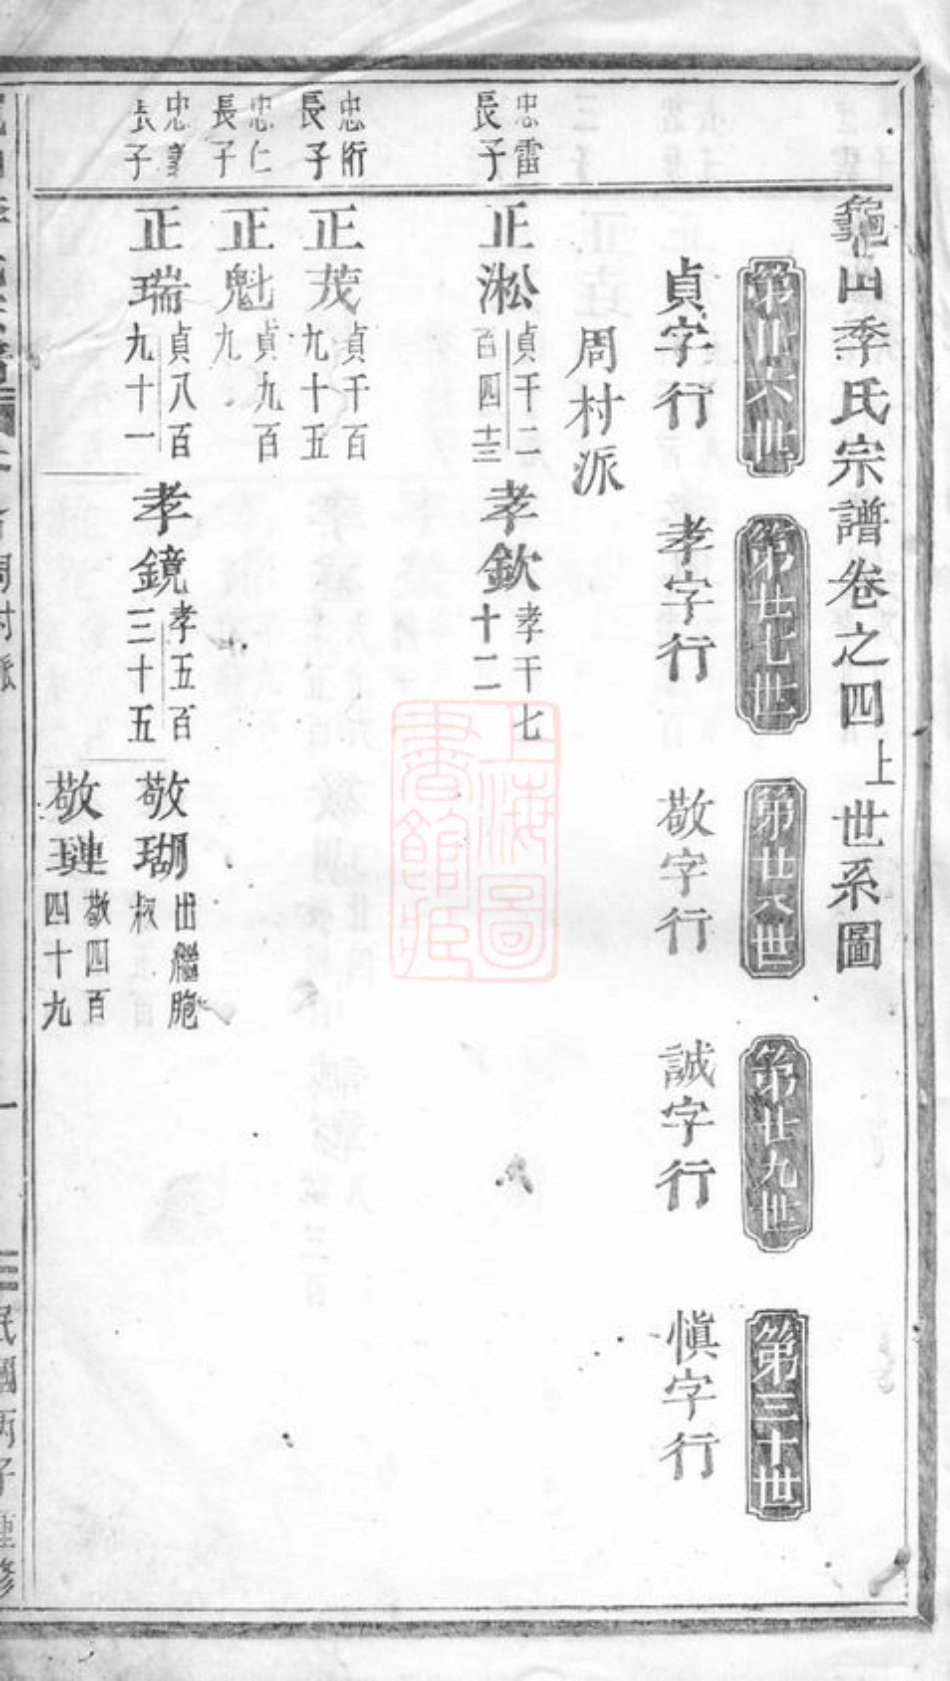 龜山季氏宗譜卷之四上世系圖
第廿六世
第廿七世
第廿八世
第廿九世
第三十世
貞字行
孝字行
敬字行
誠字行
慎字行
周村派
忠雷
長子
正淞
貞千二
百四十三
孝欽
孝千七
十二
忠衍
長子
正茂
貞千百
九十五
忠仁
長子
正魁
貞九百
九
忠
長子
正瑞
貞八百
九十一
孝鏡
孝五百
三十五
敬瑚
出繼胞
叔
敬璉
敬四百
四十九
周村派
一
民國丙子重修
上海圖
書館藏